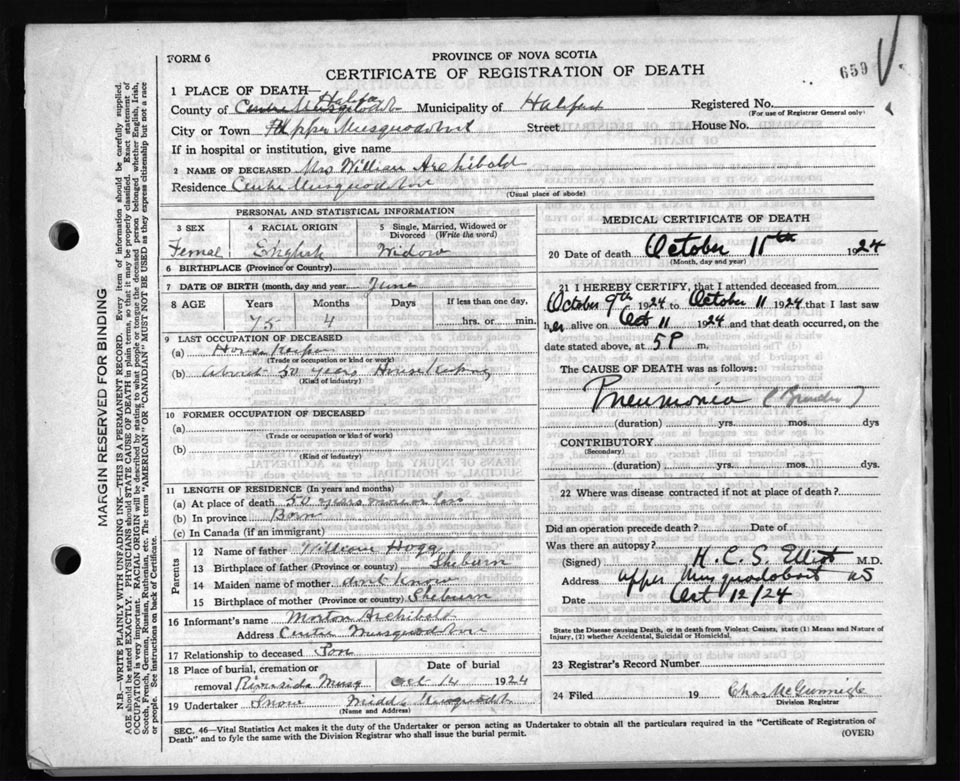 FORM 6
PROVINCE OF NOVA SCOTIA
CERTIFICATE OF REGISTRATION OF DEATH
659
1 PLACE OF DEATH—
County of Centre Musquodob Halifax Municipality of Halifax Registered No.
(For use of Registrar General only)
City or Town Upper Musquodobit Street House No.
If in hospital or institution, give name
2 NAME OF DECEASED Mrs William Archibald
Residence Centre Musquodobon
(Usual place of abode)
PERSONAL AND STATISTICAL INFORMATION
3 SEX 4 RACIAL ORIGIN 5 Single, Married, Widowed or Divorced (Write the word)
Femal English Widow
6 BIRTHPLACE (Province or Country)
7 DATE OF BIRTH (month, day and year) June
8 AGE Years Months Days If less than one day,
75 4 hrs. or min.
9 LAST OCCUPATION OF DECEASED
(a) House Keeper
(Trade or occupation or kind or work)
(b) About 50 years House Keeping
(Kind of industry)
10 FORMER OCCUPATION OF DECEASED
(a)
(Trade or occupation or kind of work)
(b)
(Kind of Industry)
11 LENGTH OF RESIDENCE (In years and months)
(a) At place of death 50 years more or less
(b) In province Born
(c) In Canada (if an immigrant)
Parents
12 Name of father William Hogg
13 Birthplace of father (Province or country) Sheburn
14 Maiden name of mother dont know
15 Birthplace of mother (Province or country) Sheburn
16 Informant's name Morton Archibald
Address Centre Musquodobon
17 Relationship to deceased Son
18 Place of burial, cremation or removal Riverside Musq Date of burial Oct 14 1924
19 Undertaker Snow Middle Musquodobt
(Name and Address)
MEDICAL CERTIFICATE OF DEATH
20 Date of death October 11th 1924
(Month, day and year)
21 I HEREBY CERTIFY, that I attended deceased from
October 9th 1924 to October 11 1924 that I last saw
her alive on Oct 11 1924 and that death occurred, on
date stated above, at 5 P m.
The CAUSE OF DEATH was as follows:
Pneumonia
(duration) yrs. mos. dys
CONTRIBUTORY
(Secondary)
(duration) yrs. mos. dys.
22 Where was disease contracted if not at place of death?
Did an operation precede death? Date of
Was there an autopsy?
(Signed) H. C. S. Elliot M.D.
Address Upper Musquodoboit NS
Date Oct 12/24
State the Disease causing Death, or in death from Violent Causes, state (1) Means and Nature of
Injury, (2) whether Accidental, Suicidal or Homicidal.
23 Registrar's Record Number
24 Filed 19 Chas McGunnigle
Division Registrar
SEC. 46—Vital Statistics Act makes it the duty of the Undertaker or person acting as Undertaker to obtain all the particulars required in the "Certificate of Registration of
Death" and to fyle the same with the Division Registrar who shall issue the burial permit.
(OVER)
MARGIN RESERVED FOR BINDING
N.B.—WRITE PLAINLY WITH UNFADING INK—THIS IS A PERMANENT RECORD. Every item of information should be carefully supplied.
AGE should be stated EXACTLY. PHYSICIANS should STATE CAUSE OF DEATH in plain terms, so that it may be properly classified. Exact statement of
OCCUPATION is very important. RACIAL ORIGIN will be described by stating to what people or tongue the deceased person belonged whether English, Irish,
Scotch, French, German, Russian, Ruthenian, etc. The terms "AMERICAN" OR "CANADIAN" MUST NOT BE USED as they express citizenship but not a race
or people. See instructions on back of Certificate.